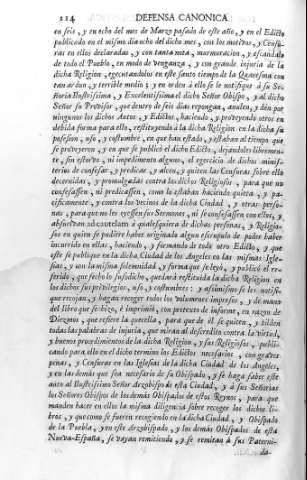 114 DEFENSA CANONICA
en seis, y en ocho del mes de Marzo pasado de este año, y en el Edicto
publicado en el mismo dia ocho del dicho mes, con los motivos, y Censu-
ras en ellos declaradas, y con tanta nota, murmuracion, y escandalo
de todo el Pueblo, en modo de venganza, y con grande injuria de la
dicha Religion, egecutandolos en este santo tiempo de la Quaresma con
tan arduo, y terrible medio; y en orden à ello se le notifique à su Se-
ñoria Ilustrissima, y Excelentissima el dicho Señor Obispo, y al dicho
Señor su Provisor, que dentro de seis dias repongan, anulen, y dèn por
ningunos los dichos Autos, y Edictos, haciendo, y proveyendo otros en
debida forma para ello, restituyendo à la dicha Religion en la dicha su
posesion, uso, y costumbre, en que han estado, y estaban al tiempo que
se proveyeron, y en que se publicò el dicho Edicto, dejandoles libremen-
te, sin estorvo, ni impedimento alguno, el egercicio de dichos minis-
terios de confesar, y predicar, y alcen, y quiten las Censuras sobre ello
decernidas, y promulgadas contra los dichos Religiosos, para que no
confesassen, ni predicassen, como lo estaban haciendo quieta, y pa-
cificamente, y contra los vecinos de la dicha Ciudad, y otras perso-
nas, para que no les oyessen sus Sermones, ni se confesassen con ellos, y
absuelvan ad cautelam à qualesquiera de dichas personas, y Religio-
sos en quien se pudiere haber originado algun escrupulo de poder haber
incurrido en ellas, haciendo, y formando de todo otro Edicto, y que
este se publique en la dicha Ciudad de los Angeles en las mismas Igle-
sias, y con la misma solemnidad, y forma que se leyò, y publicò el re-
ferido, que fecho lo susodicho, quedarà restituida la dicha Religion en
los dichos sus privilegios, uso, y costumbres: y assimismo se les notifi-
que recojan, y hagan recoger todos los volumenes impresos, y de mano
del libro que se hizo, è imprimiò, con pretexto de informe, en razon de
Diezmos, que refiere la querella, para que de èl se quiten, y tilden
todas las palabras de injuria, que miran al descredito contra la virtud,
y buenos procedimientos de la dicha Religion, y sus Religiosos, publi-
cando para ello en el dicho termino los Edictos necesarios, con graves
penas, y Censuras en las Iglesias de la dicha Ciudad de los Angeles,
y en las demàs que sea necesario de su Obispado, y se haga saber este
auto al Ilustrissimo Señor Arzobispo de esta Ciudad, y à sus Señorias
los Señores Obispos de los demàs Obispados de estos Reynos, para que
manden hacer en ellos la misma diligencia sobre recoger los dichos li-
bros, y que como se fueren recogiendo en la dicha Ciudad, y Obispado
de la Puebla, y en este Arzobispado, y los demàs Obispados de esta
Nueva-España, se vayan remitiendo, y se remitan à sus Paterni-
da-